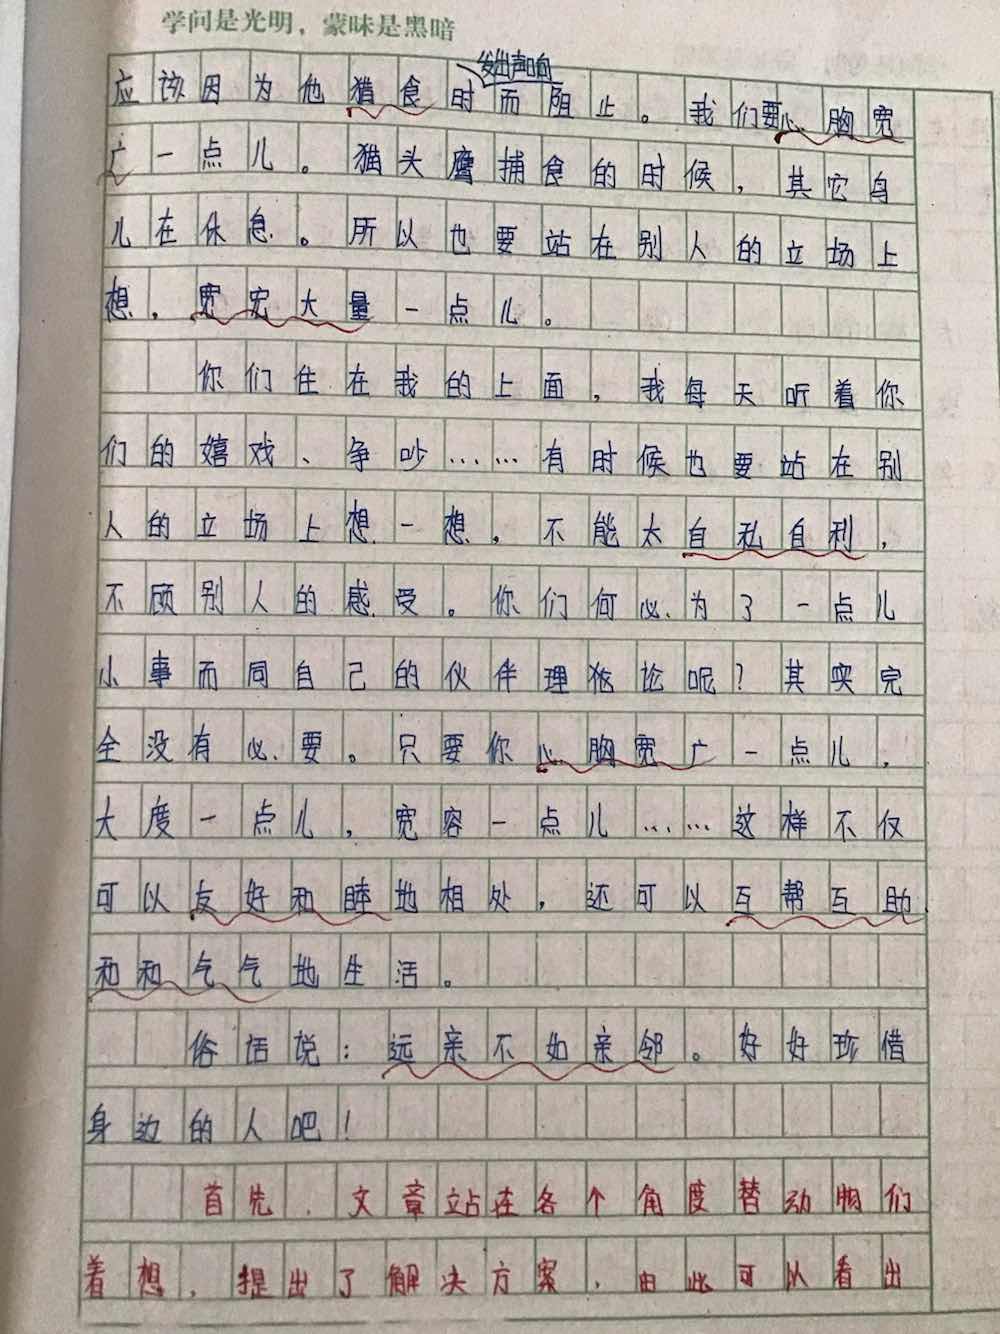 学问是光明，蒙昧是黑暗
发出声响
应该因为他猎食时而阻止。我们要心胸宽
广一点儿。猫头鹰捕食的时候，其它鸟
儿在休息。所以也要站在别人的立场上
想，宽宏大量一点儿。
你们住在我的上面，我每天听着你
们的嬉戏、争吵……有时候也要站在别
人的立场上想一想，不能太自私自利，
不顾别人的感受。你们何必为了一点儿
小事而同自己的伙伴理论呢？其实完
全没有必要。只要你心胸宽广一点儿，
大度一点儿，宽容一点儿……这样不仅
可以友好和睦地相处，还可以互帮互助
和和气气地生活。
俗话说：远亲不如亲邻。好好珍惜
身边的人吧！
首先，文章站在各个角度替动物们
着想，提出了解决方案，由此可以看出